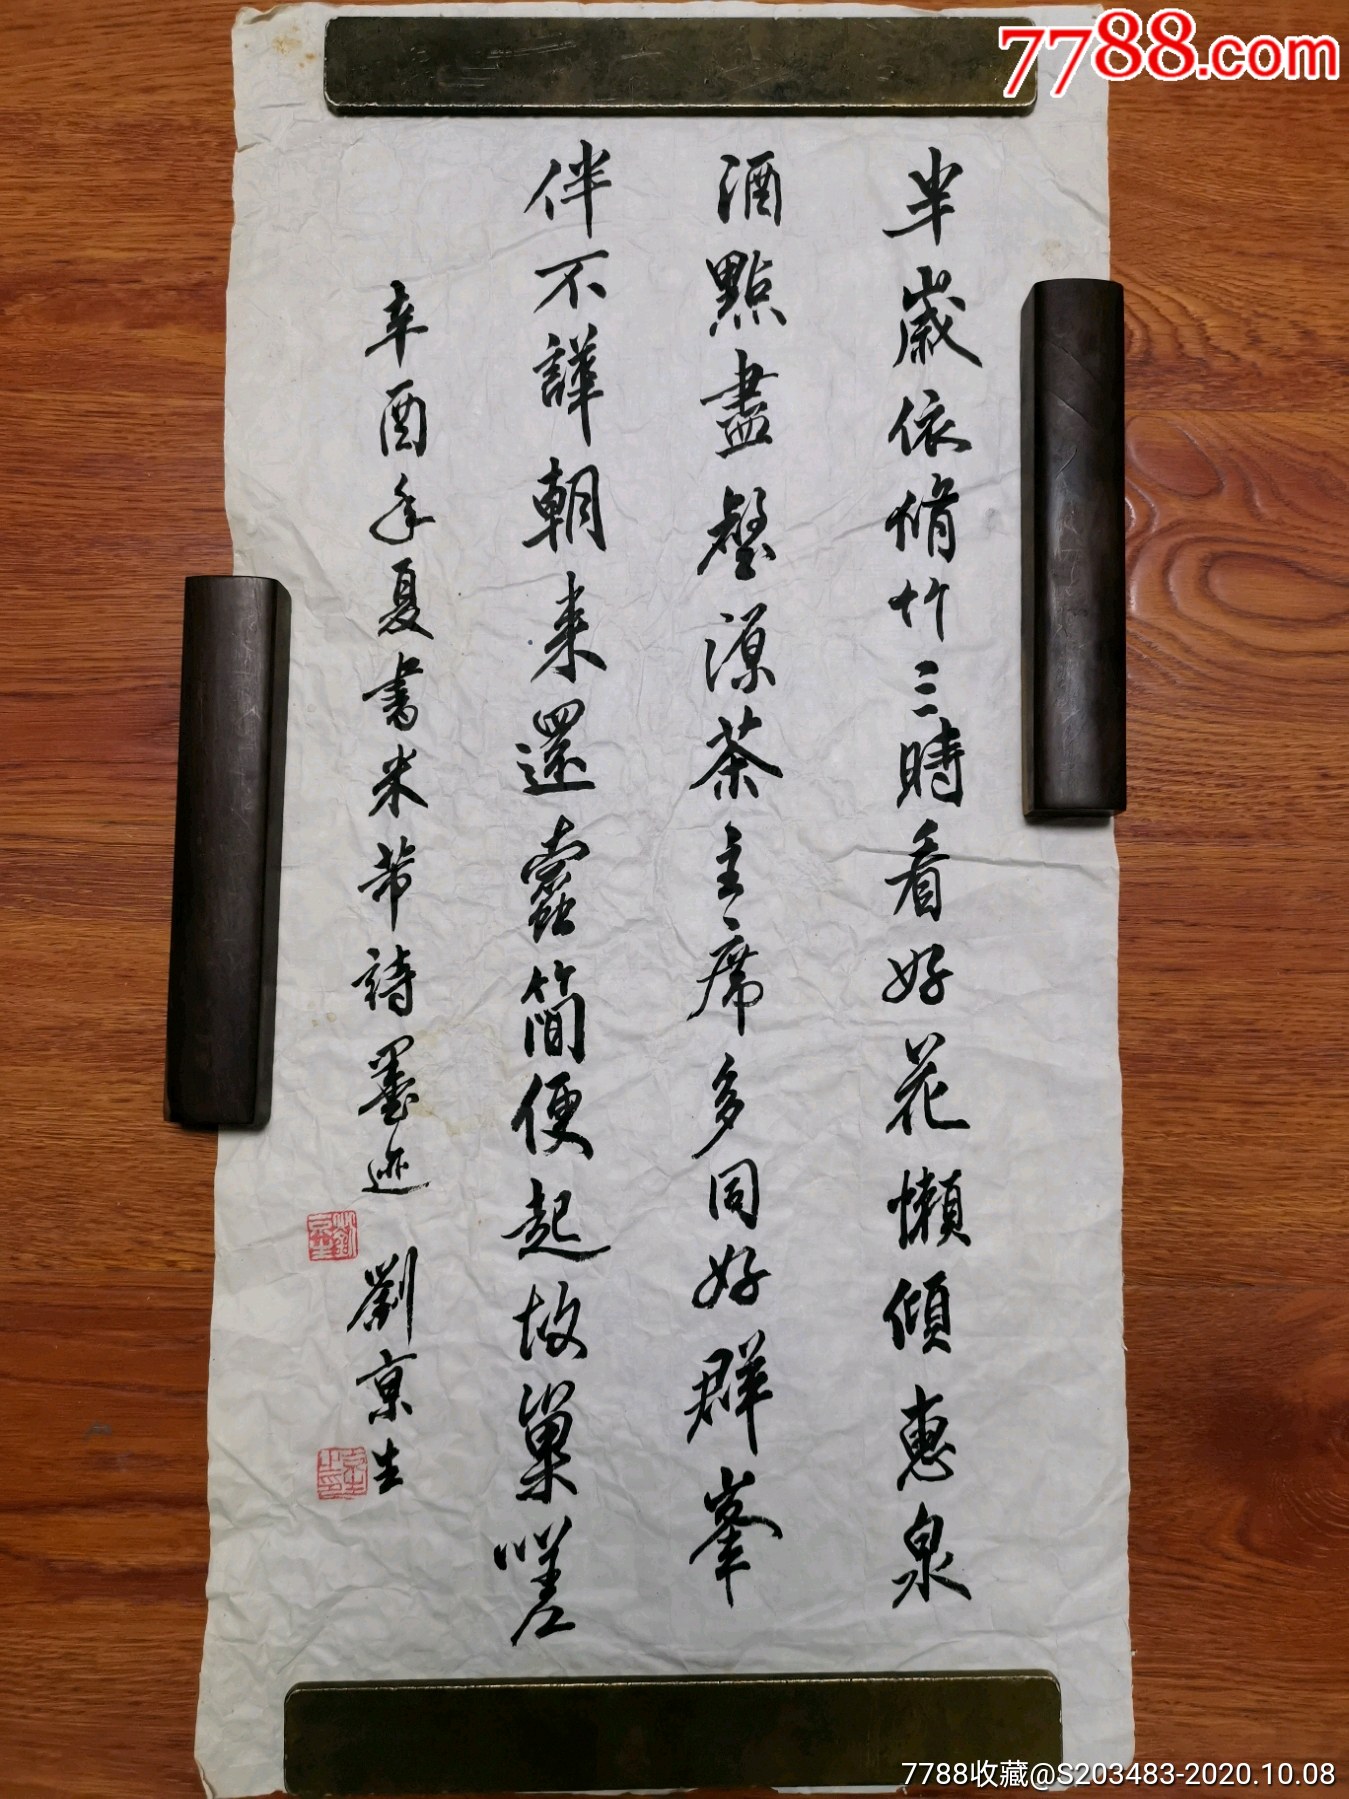 7788.com
半歲依脩竹三時看好花懶傾惠泉
酒點盡壑源茶主席多同好群峯
伴不譁朝来還蠹簡便起故巢嗟
辛酉年夏書米芾詩墨迹 劉京生
7788收藏@S203483-2020.10.08